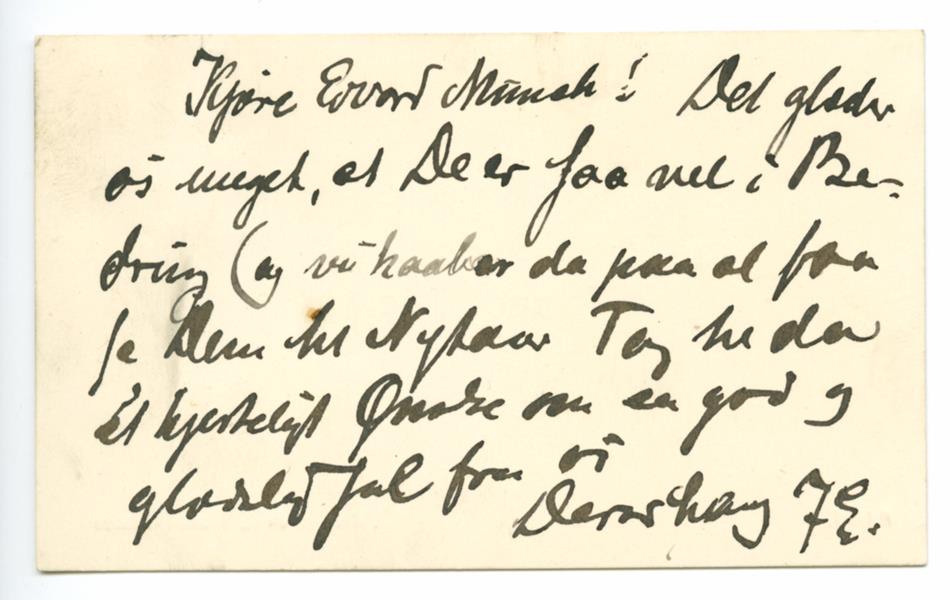 Kjære Edvard Munch! Det glæder
os meget, at De er saa vel i Be-
dring (og vi haaber da paa at faa
se Dem til Nytaar Tag til da
Et hjerteligt Ønske om en god og
glædelig Jul fra os
Deres hang